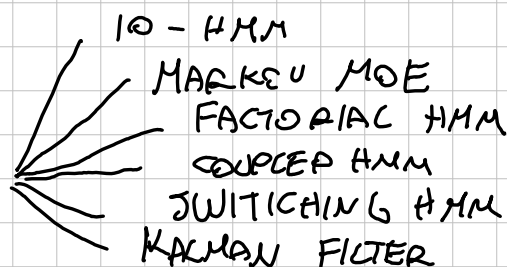 IO - HMM
MARKOV MOE
FACTORIAL HMM
COUPLED HMM
SWITICHING HMM
KALMAN FILTER